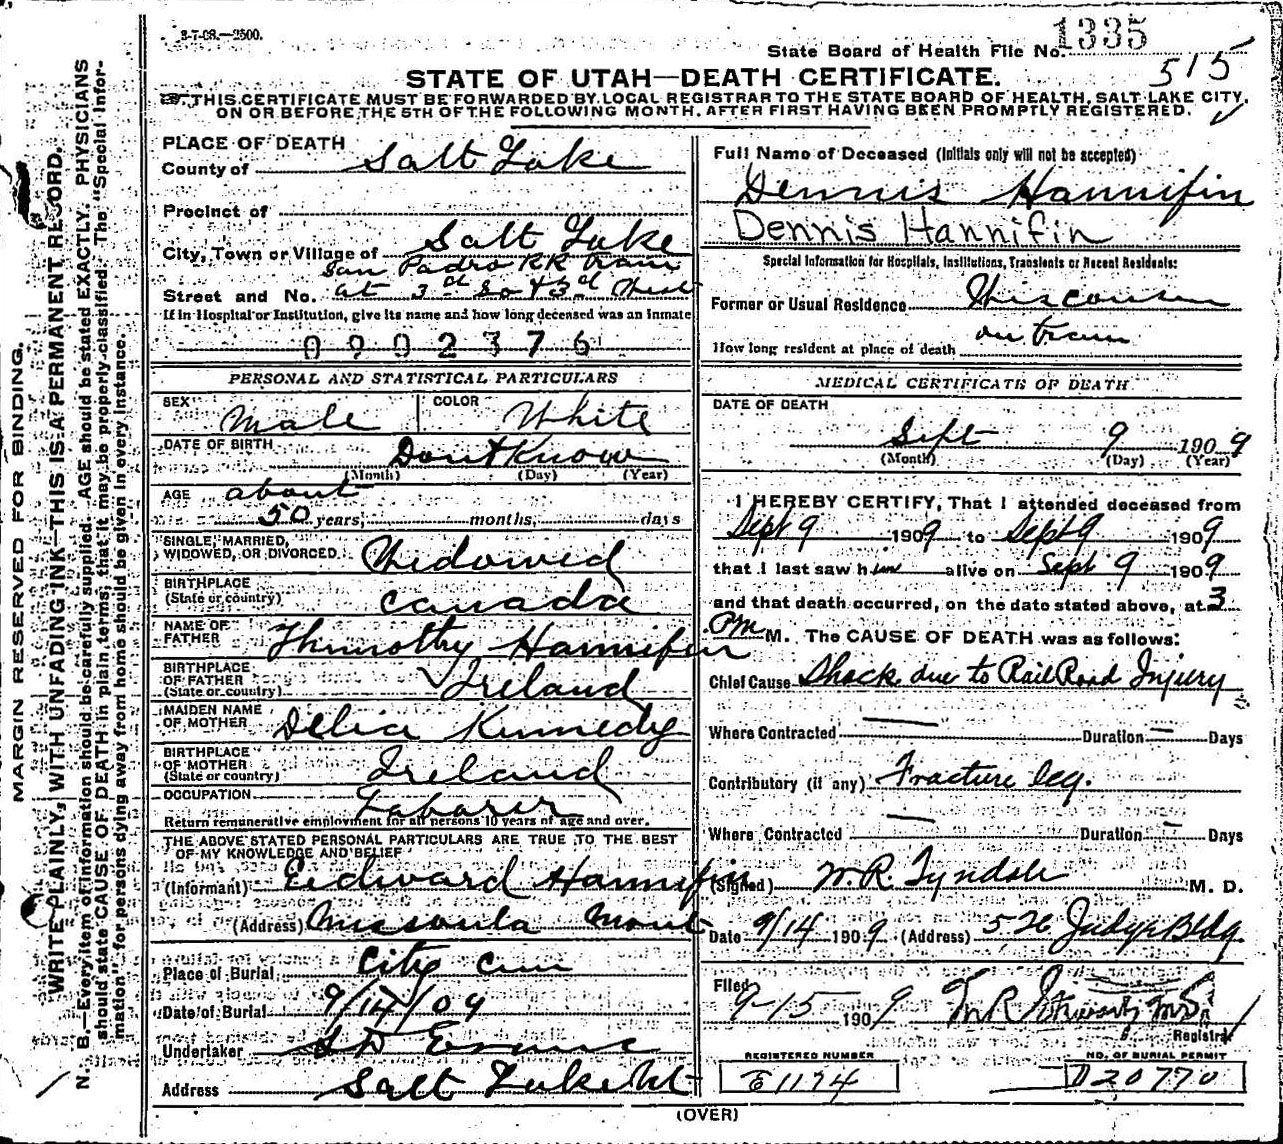 3-7-08.—2500.
State Board of Health File No. 1335
515
STATE OF UTAH—DEATH CERTIFICATE.
THIS CERTIFICATE MUST BE FORWARDED BY LOCAL REGISTRAR TO THE STATE BOARD OF HEALTH, SALT LAKE CITY,
ON OR BEFORE THE 5TH OF THE FOLLOWING MONTH, AFTER FIRST HAVING BEEN PROMPTLY REGISTERED.
MARGIN RESERVED FOR BINDING.
WRITE PLAINLY, WITH UNFADING INK—THIS IS A PERMANENT RECORD.
N. B.—Every item of information should be carefully supplied. AGE should be stated EXACTLY. PHYSICIANS
should state CAUSE OF DEATH in plain terms, that it may be properly classified. The "Special Infor-
mation" for persons dying away from home should be given in every instance.
PLACE OF DEATH
County of Salt Lake
Precinct of
City, Town or Village of Salt Lake
San Padro RR train
Street and No. at 3d So & 3d West
If in Hospital or Institution, give its name and how long deceased was an inmate
0902376
PERSONAL AND STATISTICAL PARTICULARS
SEX Male COLOR White
DATE OF BIRTH Dont Know
(Month) (Day) (Year)
AGE about
50 years, months, days
SINGLE, MARRIED,
WIDOWED, OR DIVORCED Widowed
BIRTHPLACE
(State or country) Canada
NAME OF
FATHER Thimothy Hannifin
BIRTHPLACE
OF FATHER
(State or country) Ireland
MAIDEN NAME
OF MOTHER Delia Kennedy
BIRTHPLACE
OF MOTHER
(State or country) Ireland
OCCUPATION Laborer
Return remunerative employment for all persons 10 years of age and over.
THE ABOVE STATED PERSONAL PARTICULARS ARE TRUE TO THE BEST
OF MY KNOWLEDGE AND BELIEF
(Informant) Eedward Hannifin
(Address) Missoula Mont
Place of Burial City Cem
Date of Burial 9/14/09
Undertaker S D Evans
Address Salt Lake Ut
Full Name of Deceased (Initials only will not be accepted)
Dennis Hannifin
Dennis Hannifin
Special Information for Hospitals, Institutions, Transients or Recent Residents:
Former or Usual Residence Wisconsin
How long resident at place of death on train
MEDICAL CERTIFICATE OF DEATH
DATE OF DEATH
Sept 9 1909
(Month) (Day) (Year)
I HEREBY CERTIFY, That I attended deceased from
Sept 9 1909 to Sept 9 1909
that I last saw him alive on Sept 9 1909
and that death occurred, on the date stated above, at 3
PM M. The CAUSE OF DEATH was as follows:
Chief Cause Shock due to Rail Road Injury
Where Contracted — Duration — Days
Contributory (if any) Fracture leg.
Where Contracted — Duration — Days
(Signed) W. R. Tyndale M. D.
Date 9/14 1909 (Address) 526 Judge Bldg.
Filed
9-15 1909
Registrar
REGISTERED NUMBER NO. OF BURIAL PERMIT
E1174 D20770
(OVER)